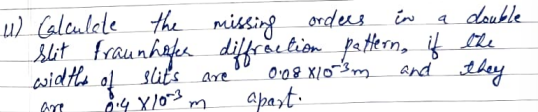 11) Calculate the missing orders in a double
slit fraunhofer diffraction pattern, if the
widths of slits are 0.08 X10⁻³m and they
are 0.4 X10⁻³ m apart.